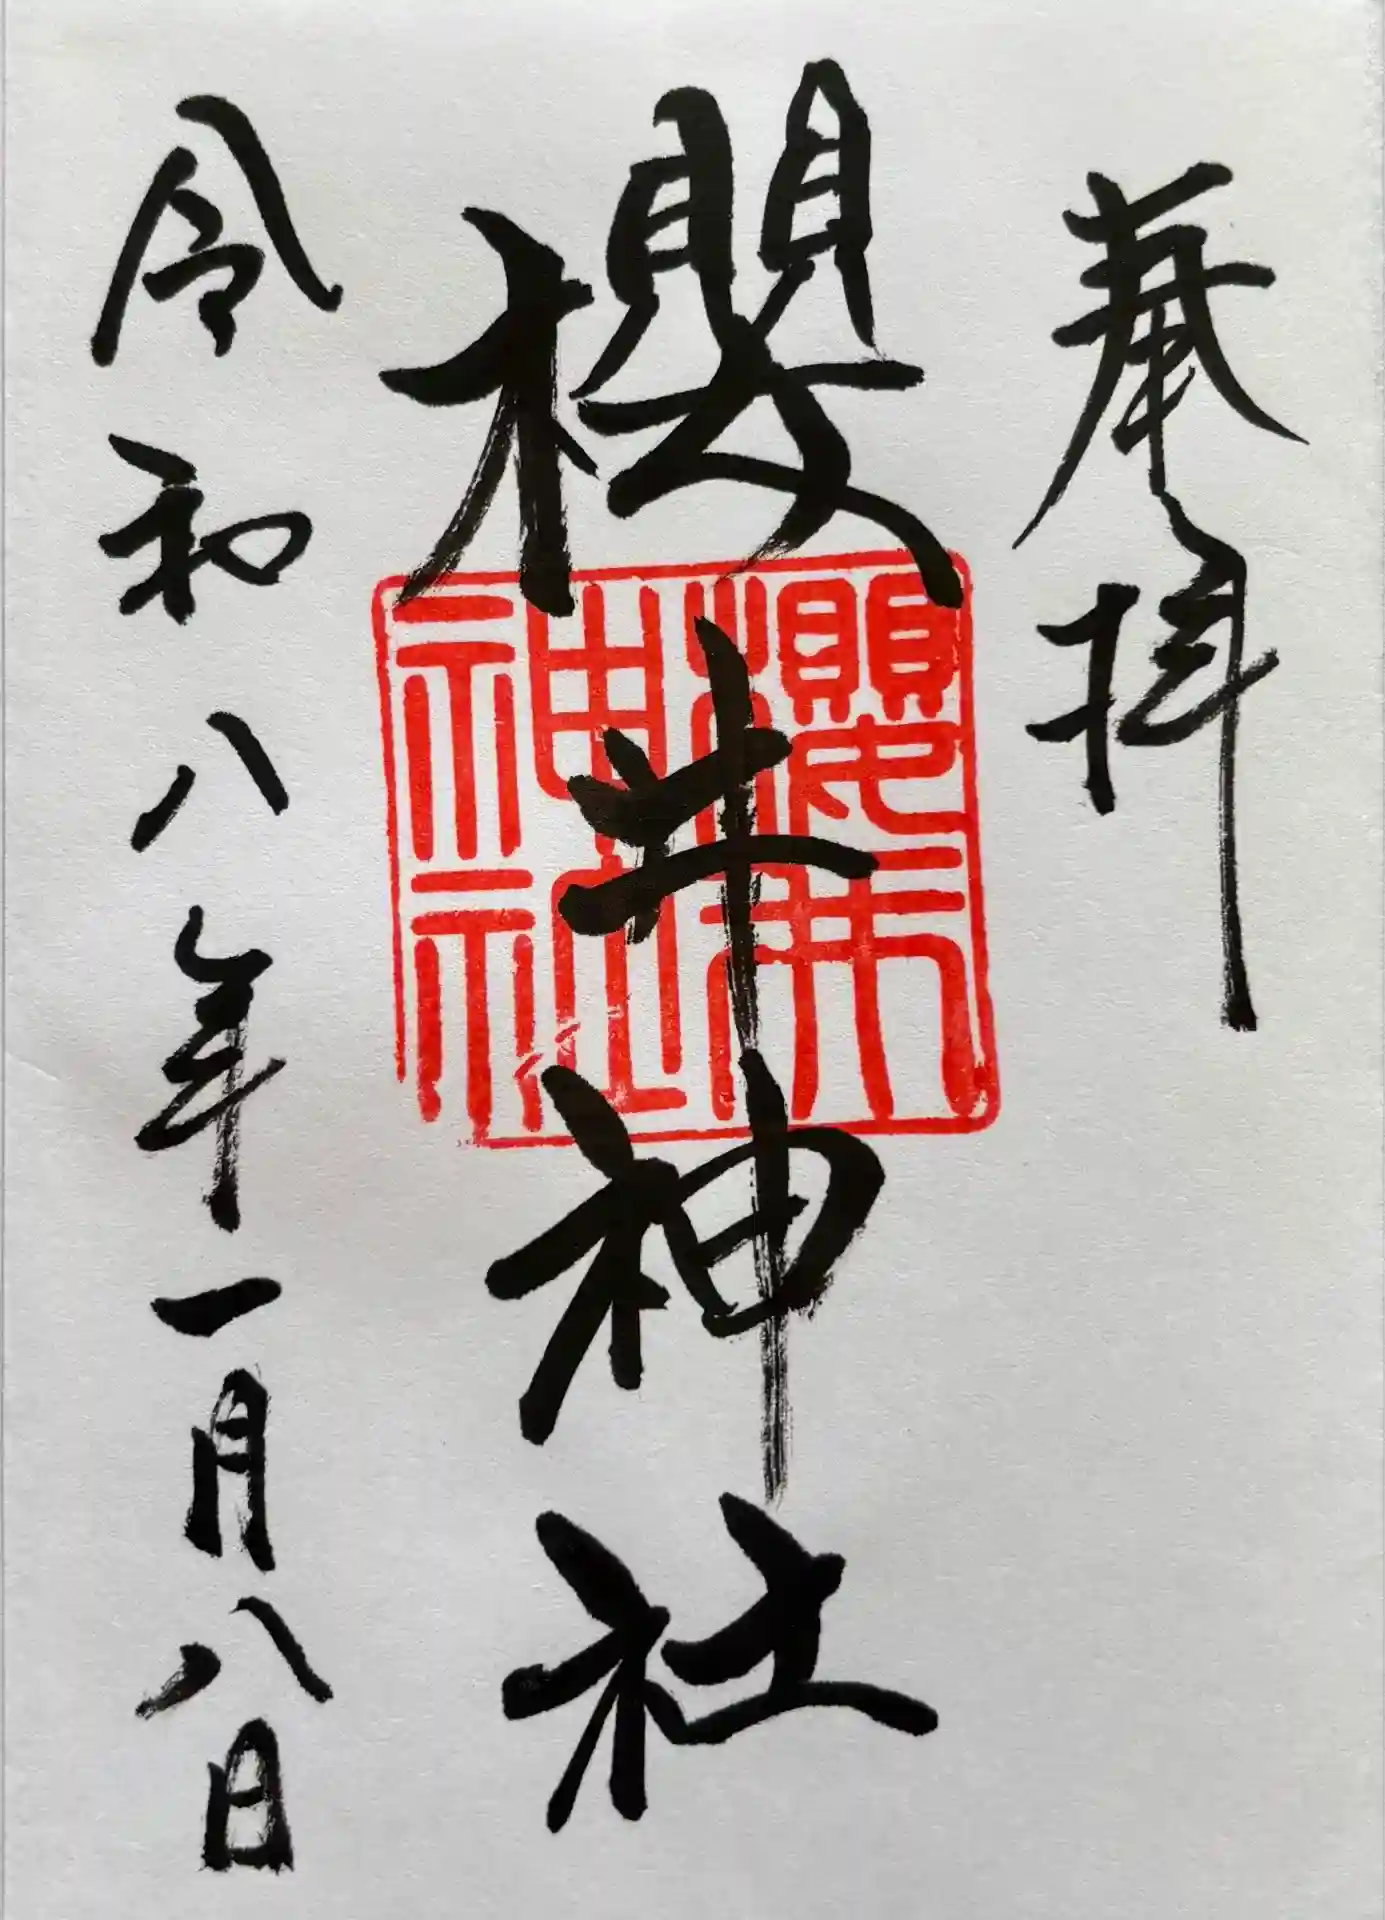 奉拝
櫻井神社
櫻井
神社
令和八年一月八日